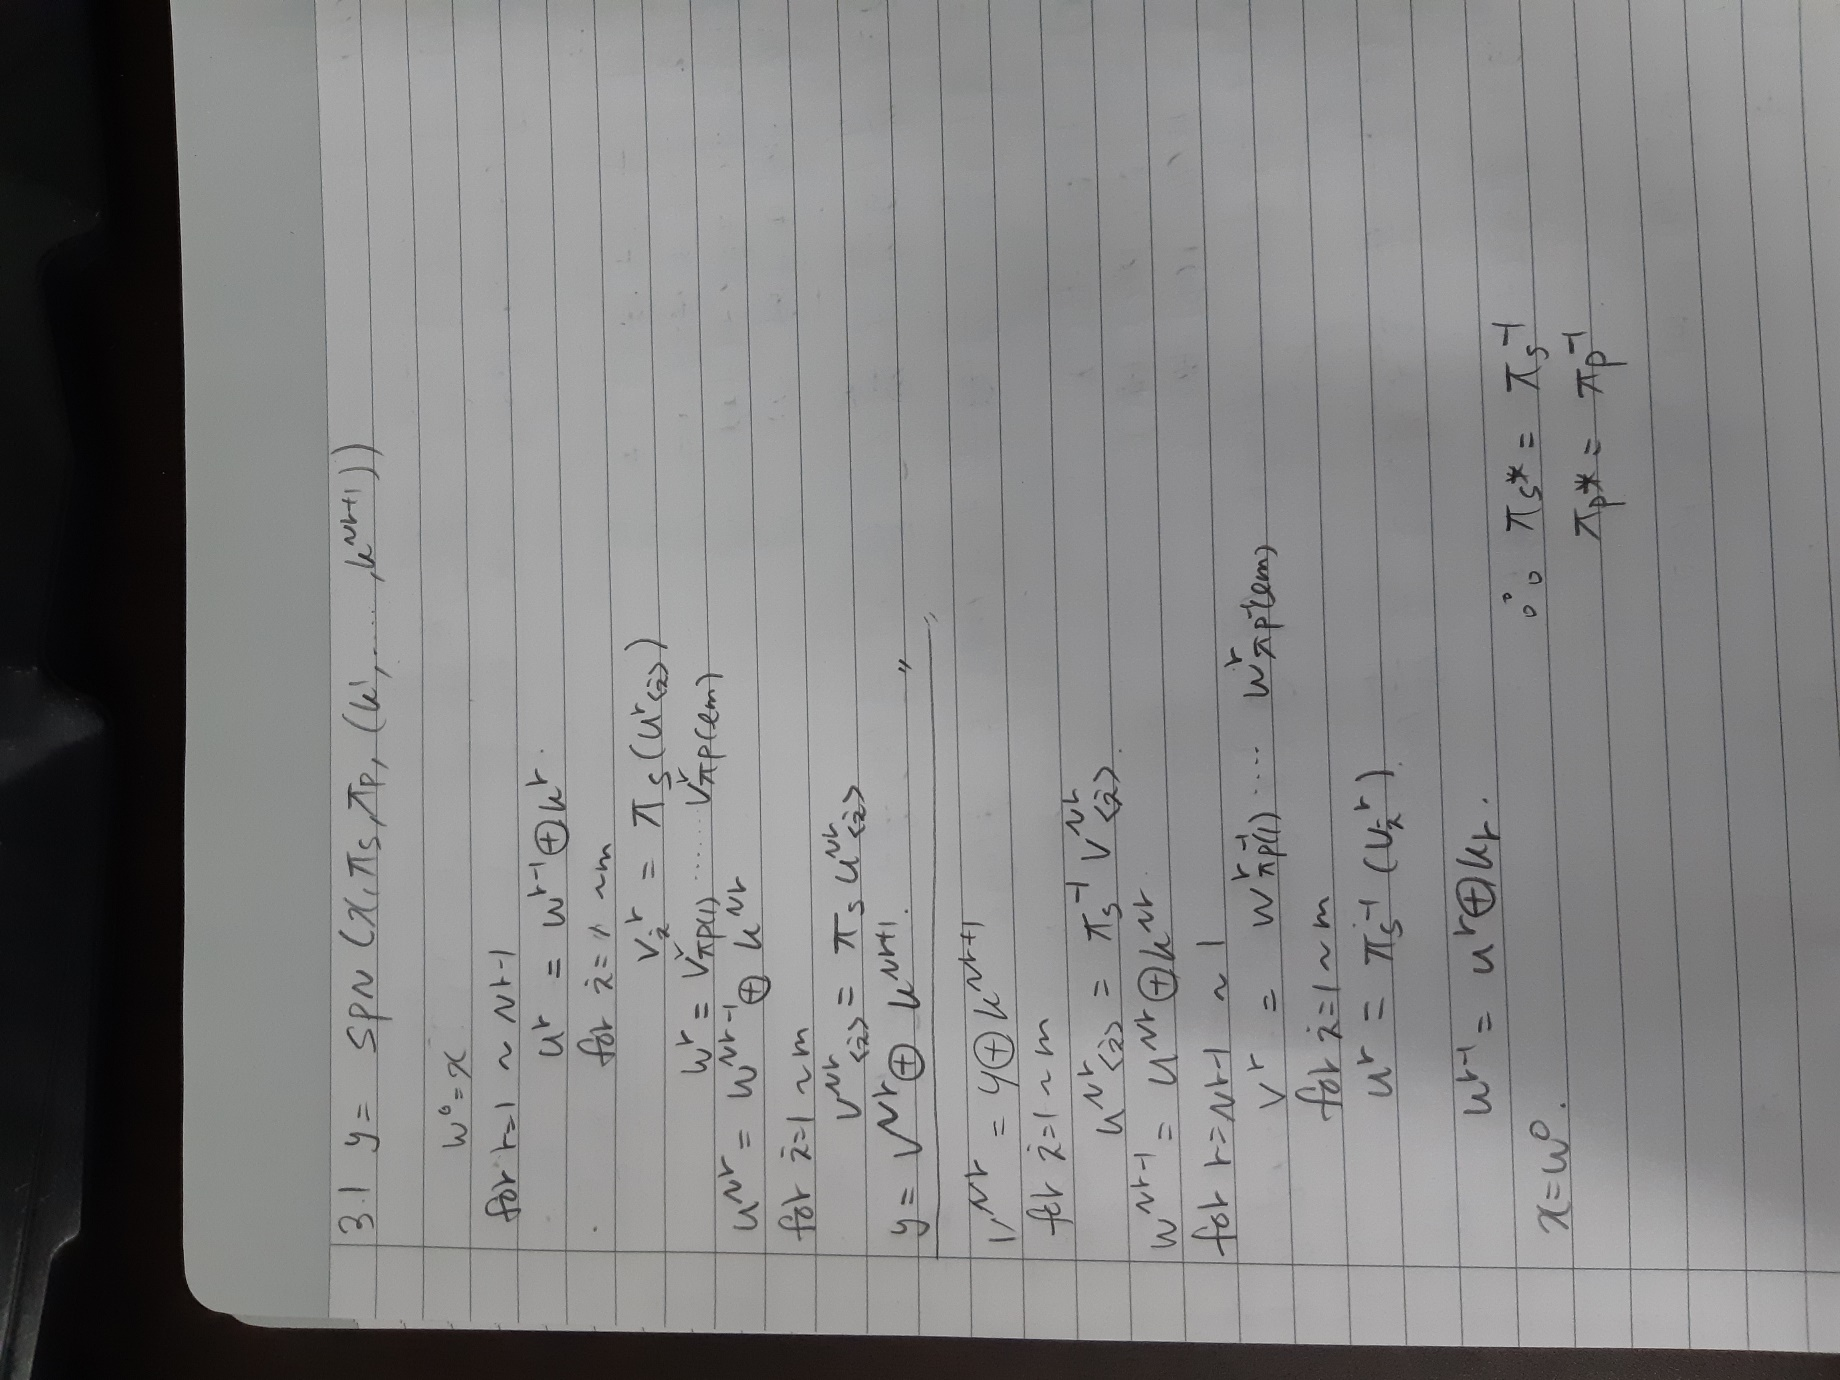 3.1 y = SPN (x, πs, πp, (k¹, ....., kᴺʳ⁺¹))
w⁰ = x
for r=1 ~ Nr-1
uʳ = wʳ⁻¹ ⊕ kʳ.
for i=1 ~m
vᵢʳ = πs (uʳ<i>)
wʳ = vʳπp(1) ...... vʳπp(lm)
uᴺʳ = wᴺʳ⁻¹ ⊕ kᴺʳ
for i=1 ~ m
vᴺʳ<i> = πs uᴺʳ<i>
y = vᴺʳ ⊕ kᴺʳ⁺¹. 〃
vᴺʳ = y ⊕ kᴺʳ⁺¹
for i=1 ~ m
uᴺʳ<i> = πs⁻¹ vᴺʳ<i>.
wᴺʳ⁻¹ = uᴺʳ ⊕ kᴺʳ.
for r=Nr-1 ~ 1
vʳ = wʳπp⁻¹(1) .... wʳπp⁻¹(lm)
for i=1 ~ m
uʳ = πs⁻¹ (vᵢʳ).
wʳ⁻¹ = uʳ ⊕ kr.
x = w⁰. ∴ πs* = πs⁻¹
πp* = πp⁻¹